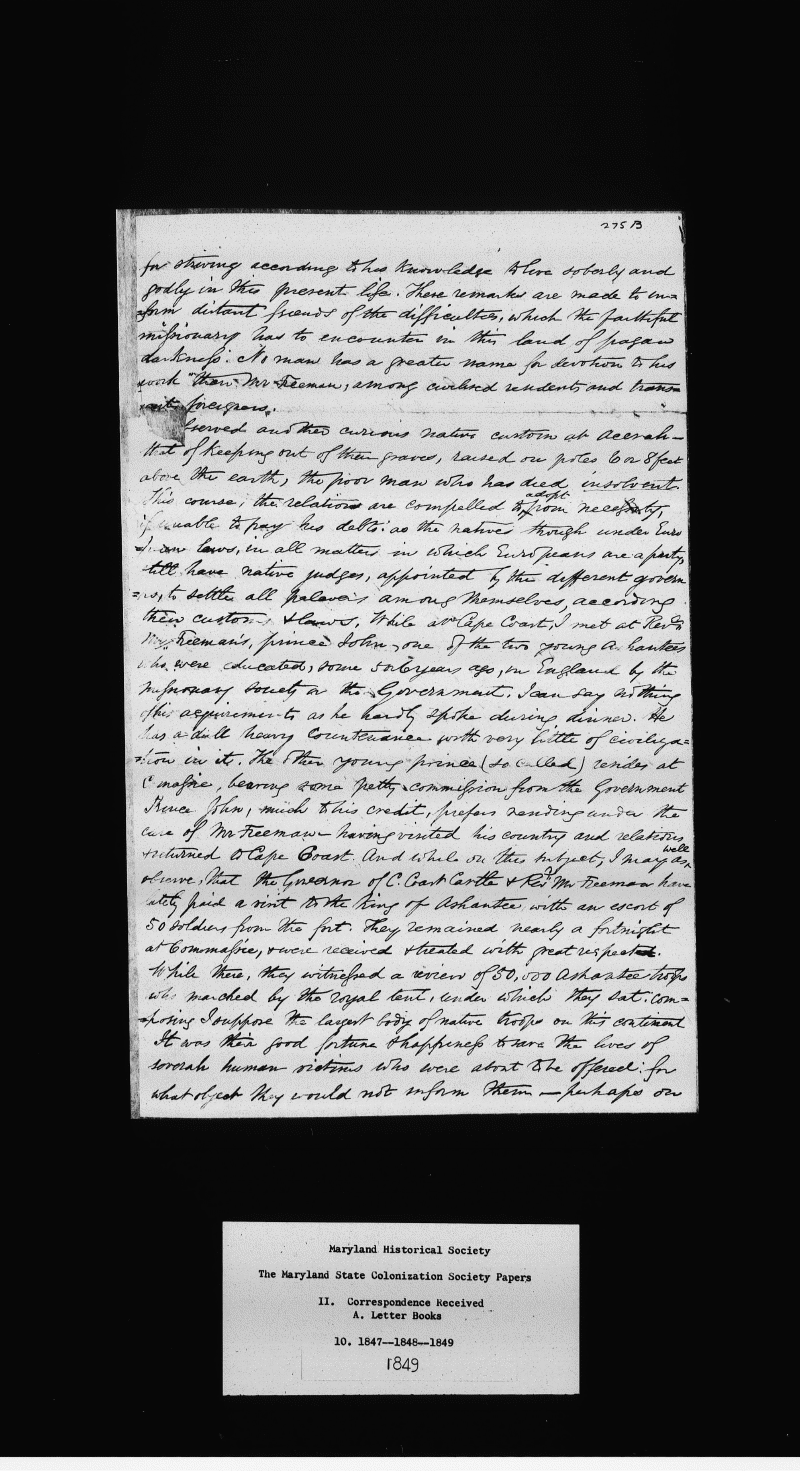 275 B
for striving according to his knowledge to live soberly and
godly in this present life. These remarks are made to in=
=form distant friends of the difficulties, which the faithful
missionary has to encounter in this land of pagan
darkness. No man has a greater name for devotion to his
work than Mr Freeman, among civilised residents and trans=
foreigners.
served another curious native custom at Accrah—
that of keeping out of their graves, raised on poles 6 or 8 feet
above the earth, the poor man who has died insolvent.
This course, the relations are compelled to adopt from necessity,
if unable to pay his debts: as the natives though under Euro
laws, in all matters in which Europeans are a party,
still have native judges, appointed by the different govern
=rs, to settle all palavers among themselves, according
their customs & laws. While at Cape Coast, I met at Revd
Mr Freeman's, prince John, one of the two young Ashantees
who were educated, some 5 or 6 years ago, in England by the
missionary society or the Government. I can say nothing
of his acquirements as he hardly spoke during dinner. He
has a dull heavy countenance with very little of civiliza=
=tion in it. The other young prince (so called) resides at
Comassie, bearing some petty commission from the Government
Prince John, much to his credit, prefers residing under the
care of Mr Freeman— having visited his country and relations
& returned to Cape Coast. And while on this subject, I may as well
observe, that the Governor of C. Coast Castle & Revd Mr Freeman have
lately paid a visit to the King of Ashantee with an escort of
50 soldiers from the fort. They remained nearly a fortnight
at Commassie, & were received & treated with great respect.
While there, they witnessed a review of 50,000 Ashantee troops
who marched by the royal tent, under which they sat: com=
=posing I suppose the largest body of native troops on this continent
It was their good fortune & happiness to save the lives of
several human victims who were about to be offered: for
what object they would not inform them — perhaps on
Maryland Historical Society
The Maryland State Colonization Society Papers
II. Correspondence Received
A. Letter Books
10. 1847--1848--1849
1849